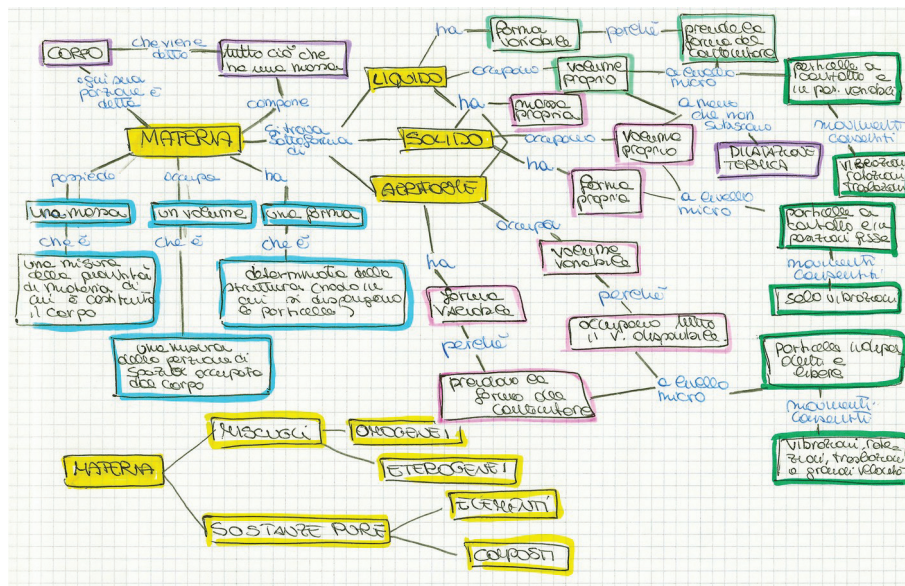 CORPO
che viene
detto
tutto ciò che
ha una massa
qui sua
porzione è
detta
compone
MATERIA
si trova
sottoforma
di
possiede
occupa
ha
una massa
un volume
una forma
che è
che è
che è
una misura
della quantità
di materia di
cui è costituito
il corpo
una misura
della porzione di
spazio occupato
dal corpo
determinata dalla
struttura (modo in
cui si dispongono
le particelle)
LIQUIDO
ha
forma
variabile
perché
prende la
forma del
contenitore
occupano
volume
proprio
a livello
micro
particelle a
contatto e
in pos. variabili
movimenti
consentiti
vibrazioni
rotazioni
traslazioni
ha
massa
propria
a meno
che non
subiscano
DILATAZIONE
TERMICA
SOLIDO
occupano
volume
proprio
ha
forma
propria
a livello
micro
particelle a
contatto e in
posizioni fisse
movimenti
consentiti
solo vibrazioni
AERIFORME
ha
forma
variabile
perché
prendono la
forma del
contenitore
occupa
volume
variabile
perché
occupano tutto
il V. disponibile
a livello
micro
particelle indipen
denti e
libere
movimenti
consentiti
vibrazioni, rota
zioni, traslazioni
a grandi velocità
MATERIA
MISCUGLI
OMOGENEI
ETEROGENEI
SOSTANZE PURE
ELEMENTI
COMPOSTI